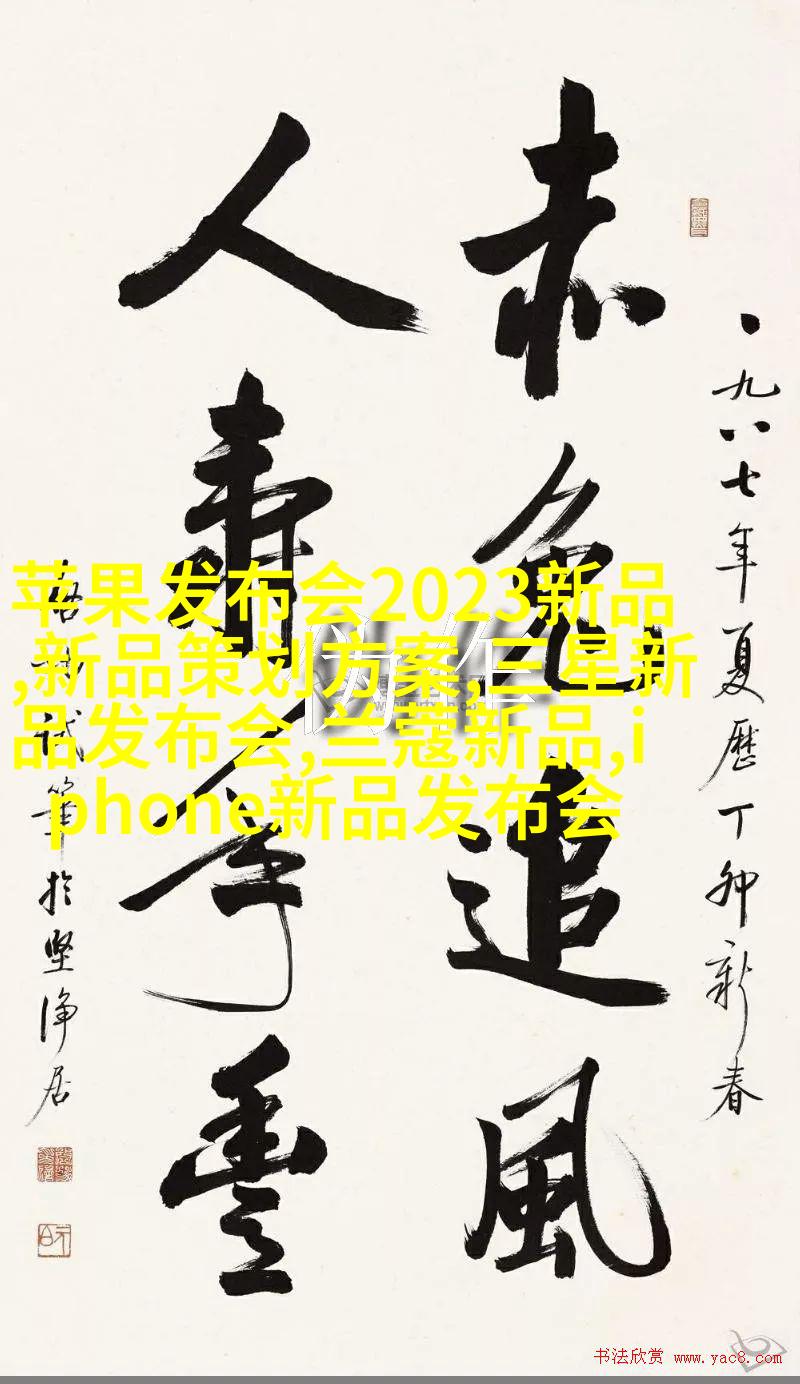 一九八七年夏历丁卯新春
赤兔追風
人寿年豊
启功试笔於坚净居
苹果发布会2023新品
,新品策划方案,三星新
品发布会,兰蔻新品,i
phone新品发布会
伪作
书法欣赏 www.yac8.com